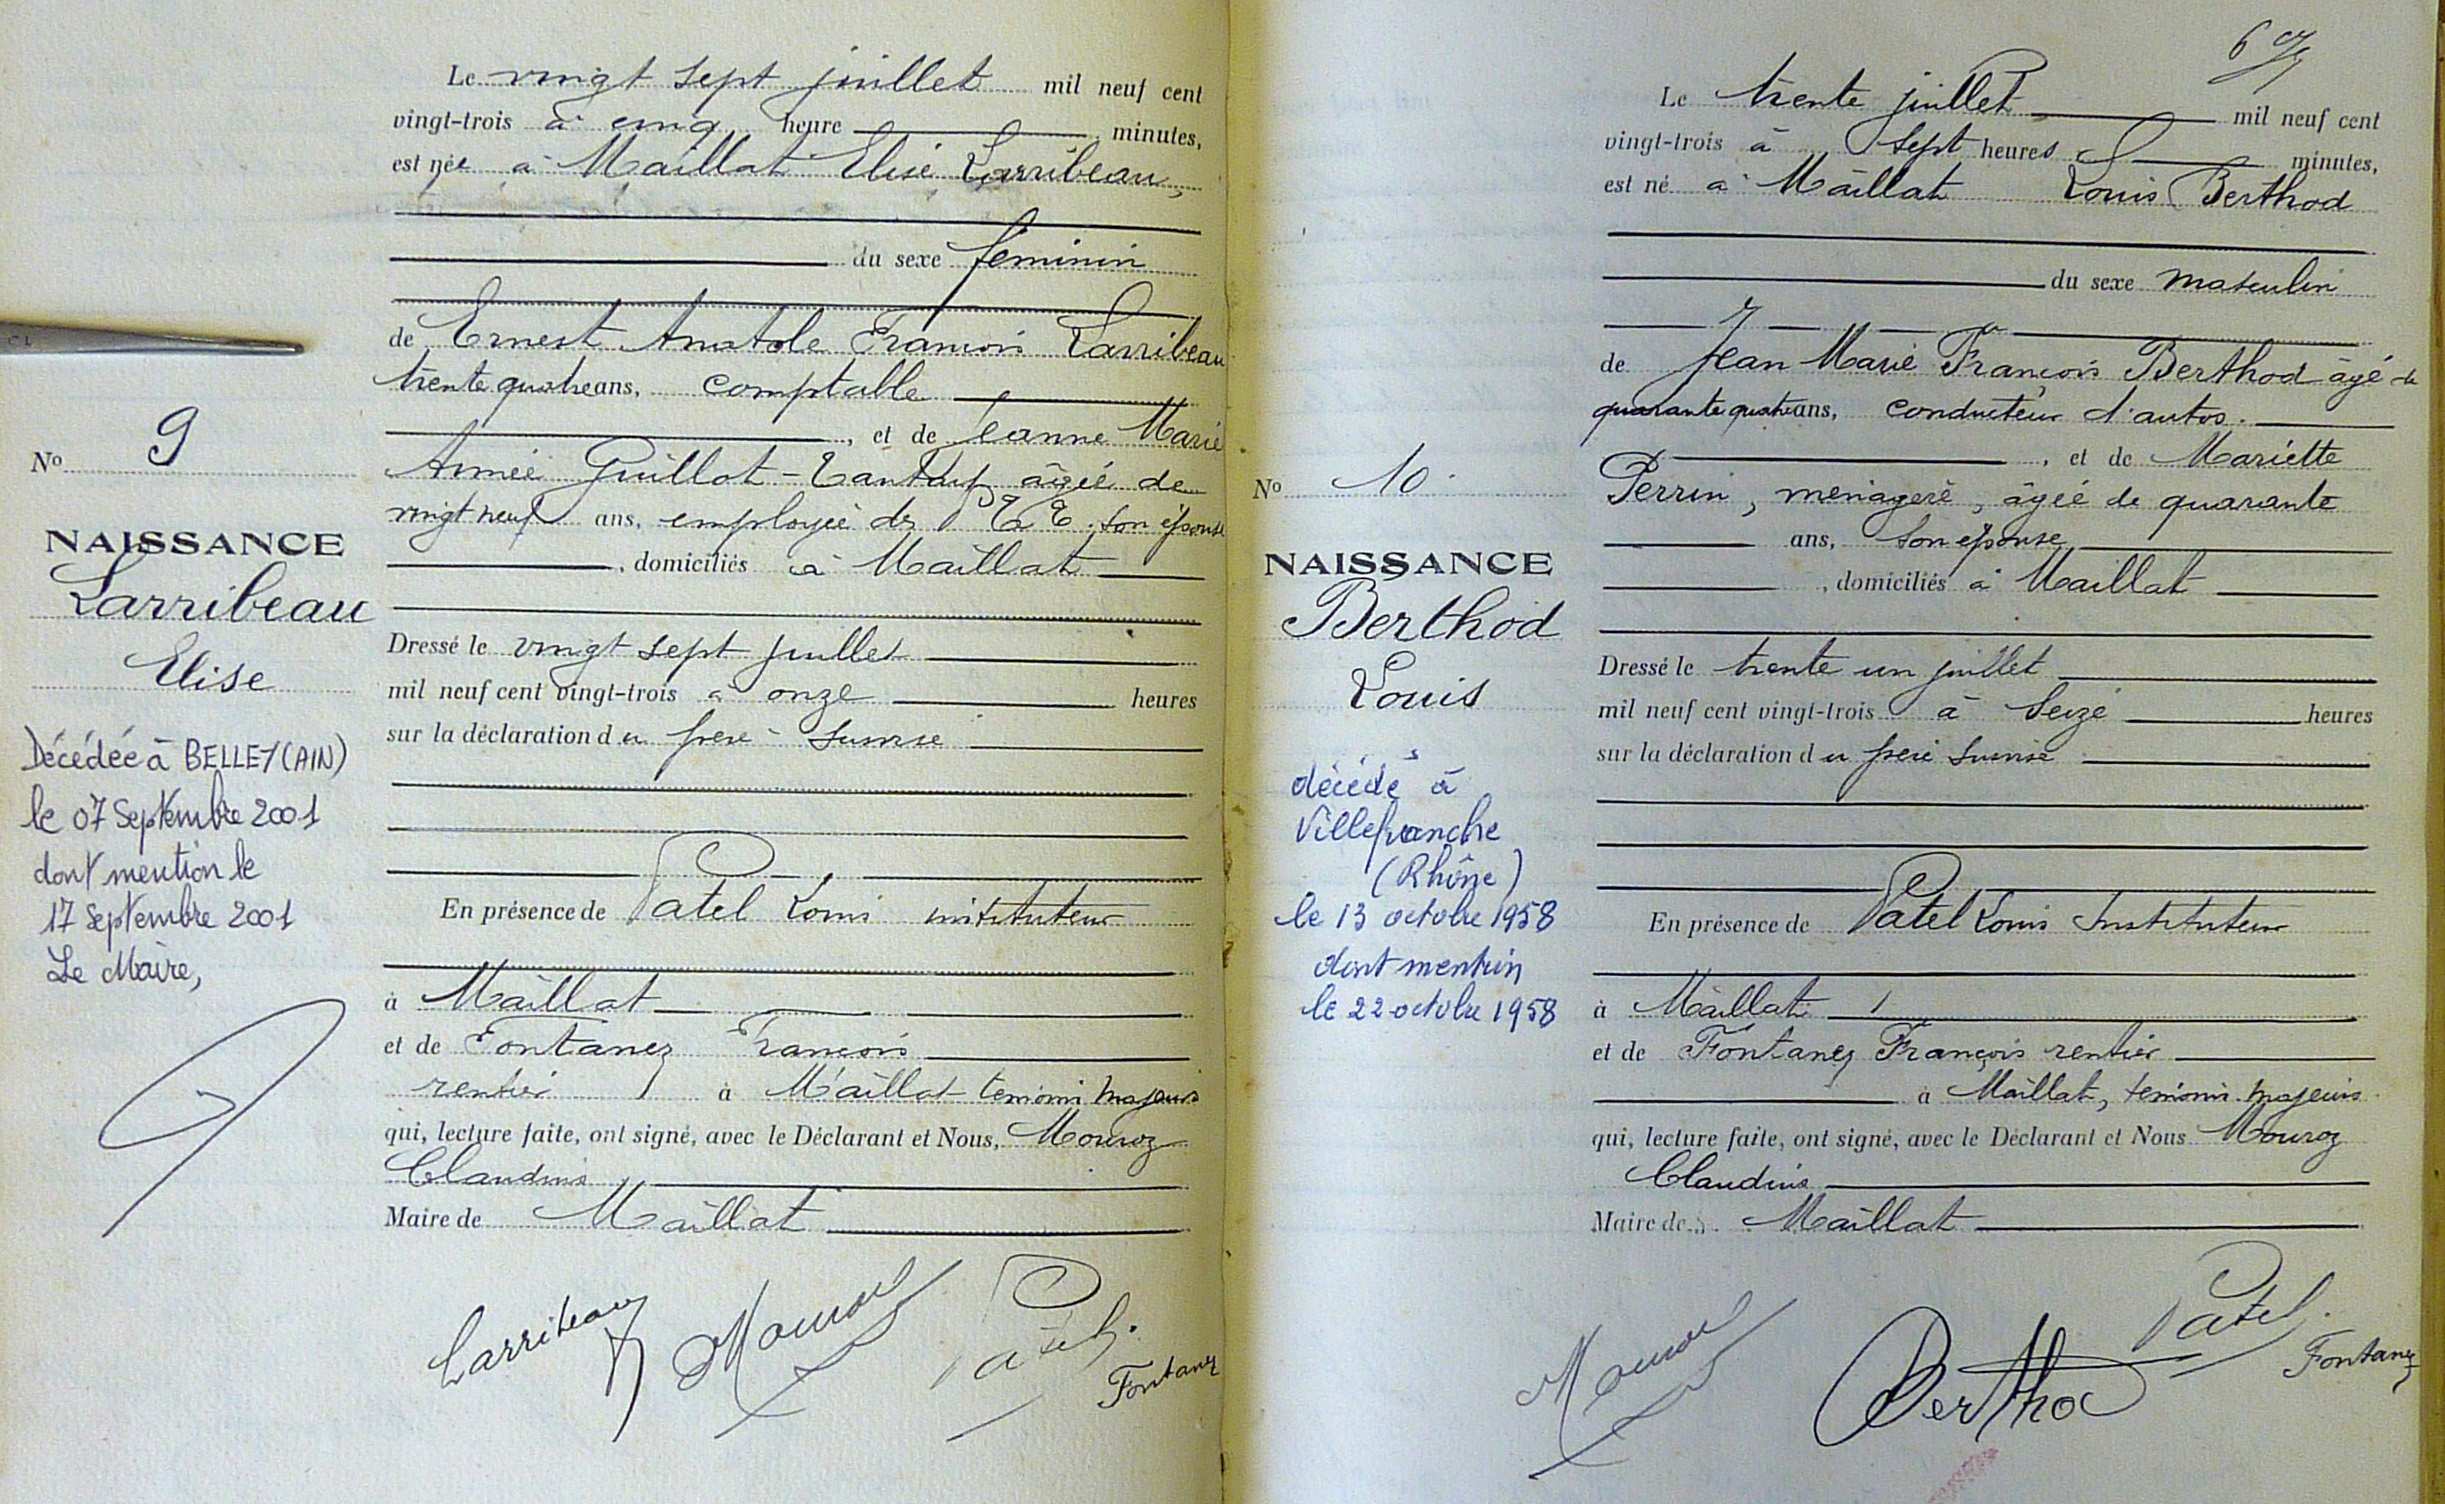 Le vingt sept juillet mil neuf cent
vingt-trois à cinq heure minutes,
est née à Maillat Elise Larribeau,
du sexe féminin
de Ernest Anatole François Larribeau
trente quatre ans, comptable
, et de Jeanne Marie
Aimée Guillot - âgée de
vingt neuf ans, employée des P T T. son épouse
, domiciliés à Maillat
Dressé le vingt sept juillet
mil neuf cent vingt-trois à onze heures
sur la déclaration du père susnisé
En présence de Patel Louis instituteur
à Maillat
et de Fontanez François
rentier à Maillat témoins majeurs
qui, lecture faite, ont signé, avec le Déclarant et Nous, Mouroz
Claudius
Maire de Maillat
Larribeau
Patel.
Fontanez
No 9
NAISSANCE
Larribeau
Elise
Décédée à BELLEY (AIN)
le 07 Septembre 2001
dont mention le
17 septembre 2001
Le Maire,
6
Le trente juillet mil neuf cent
vingt-trois à sept heures minutes,
est né à Maillat Louis Berthod
du sexe masculin
de Jean Marie François Berthod âgé de
quarante quatre ans, conducteur d'autos.
, et de Mariette
Perrin, ménagère, âgée de quarante
ans, son épouse
, domiciliés à Maillat
Dressé le trente un juillet
mil neuf cent vingt-trois à seize heures
sur la déclaration du père susnisé
En présence de Patel Louis Instituteur
à Maillat
et de Fontanez François rentier
à Maillat, témoins majeurs
qui, lecture faite, ont signé, avec le Déclarant et Nous Mouroz
Claudius
Maire de Maillat
Patel.
Berthod
Fontanez
No 10.
NAISSANCE
Berthod
Louis
décédé à
Villefranche
(Rhône)
le 13 octobre 1958
dont mention
le 22 octobre 1958